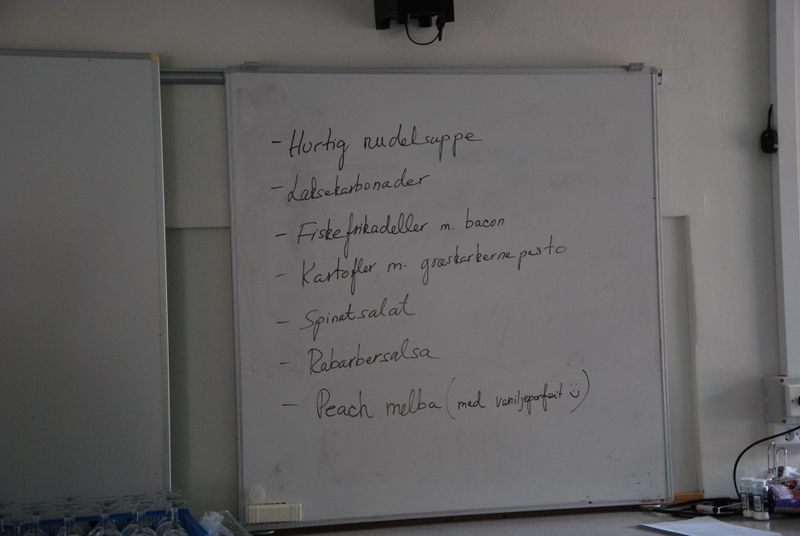 - Hurtig nudelsuppe
- Laksekarbonader
- Fiskefrikadeller m. bacon
- Kartofler m. græskarkernepesto
- Spinatsalat
- Rabarbersalsa
- Peach melba (med vaniljeparfait :))